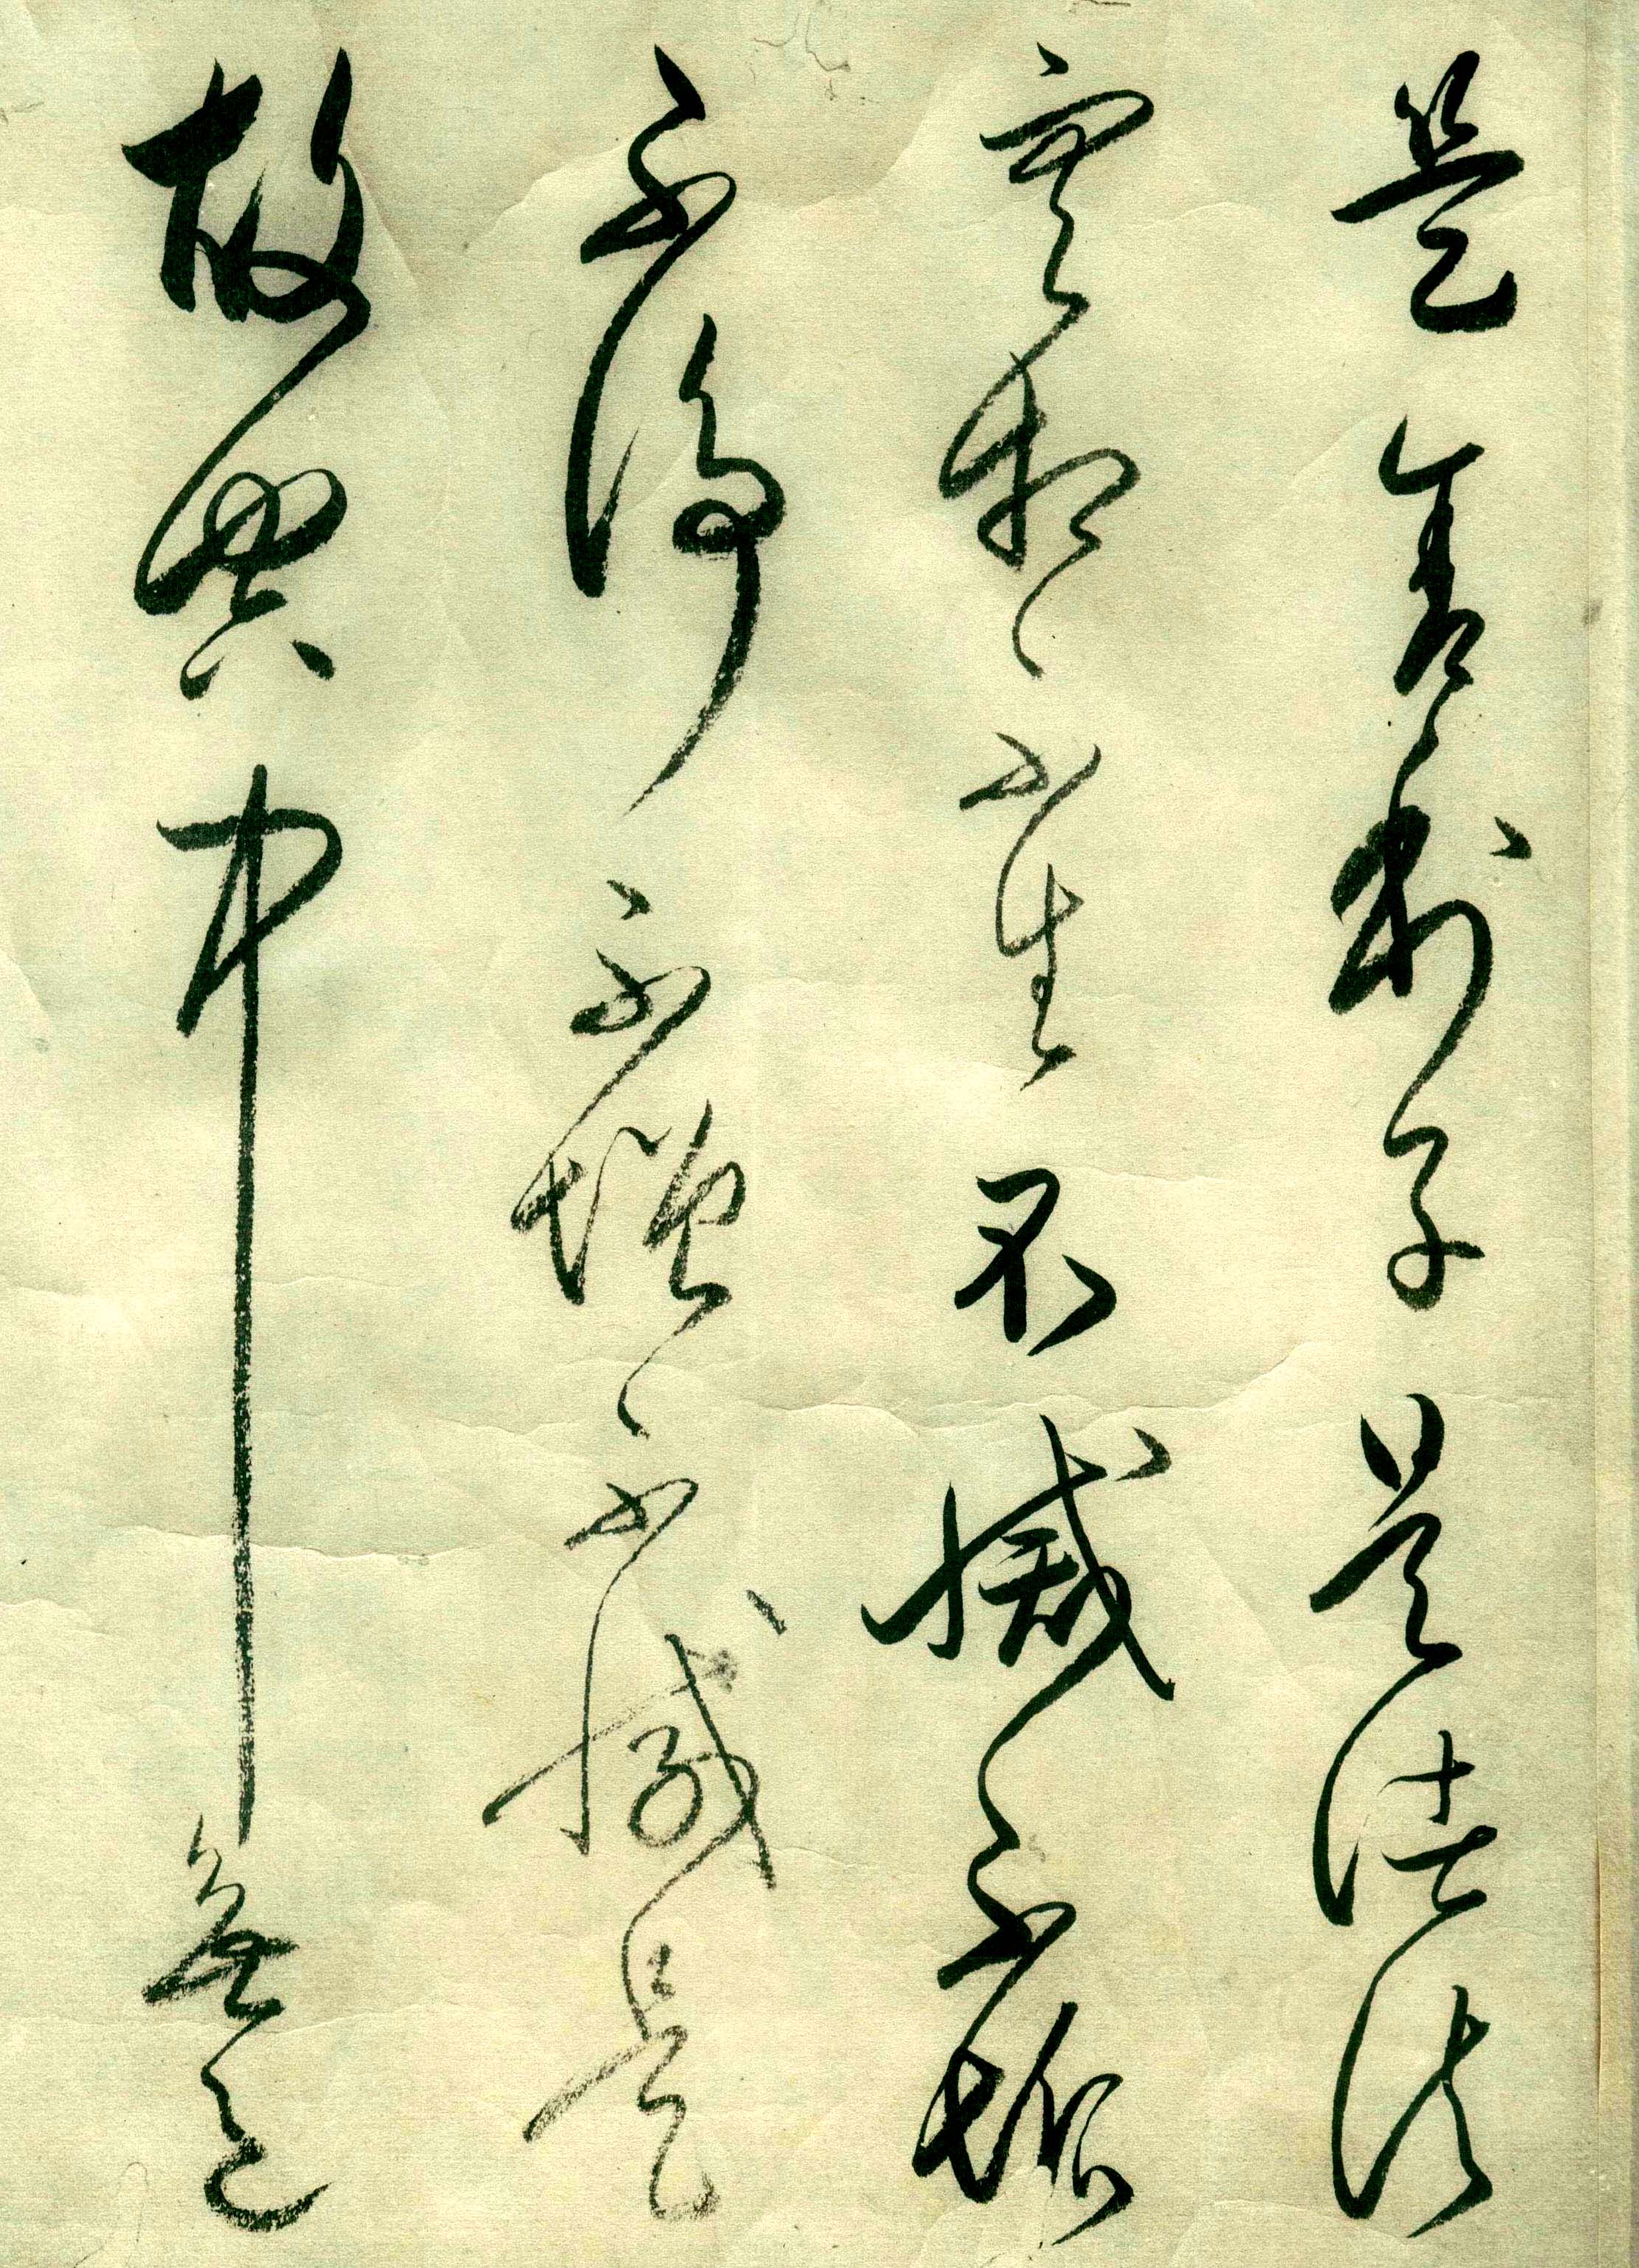 是舍利子是諸法
空相不生不滅不垢
不淨不增不減是
故中無色